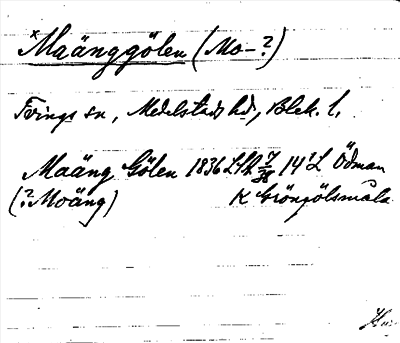 *Maänggölen (Mo-?)
Tvings sn, Medelstads hd, Blek. l.
Maäng Gölen 1836 LSA 7/38 14? L Ödman
(? Moäng) K Grönpölsmåla